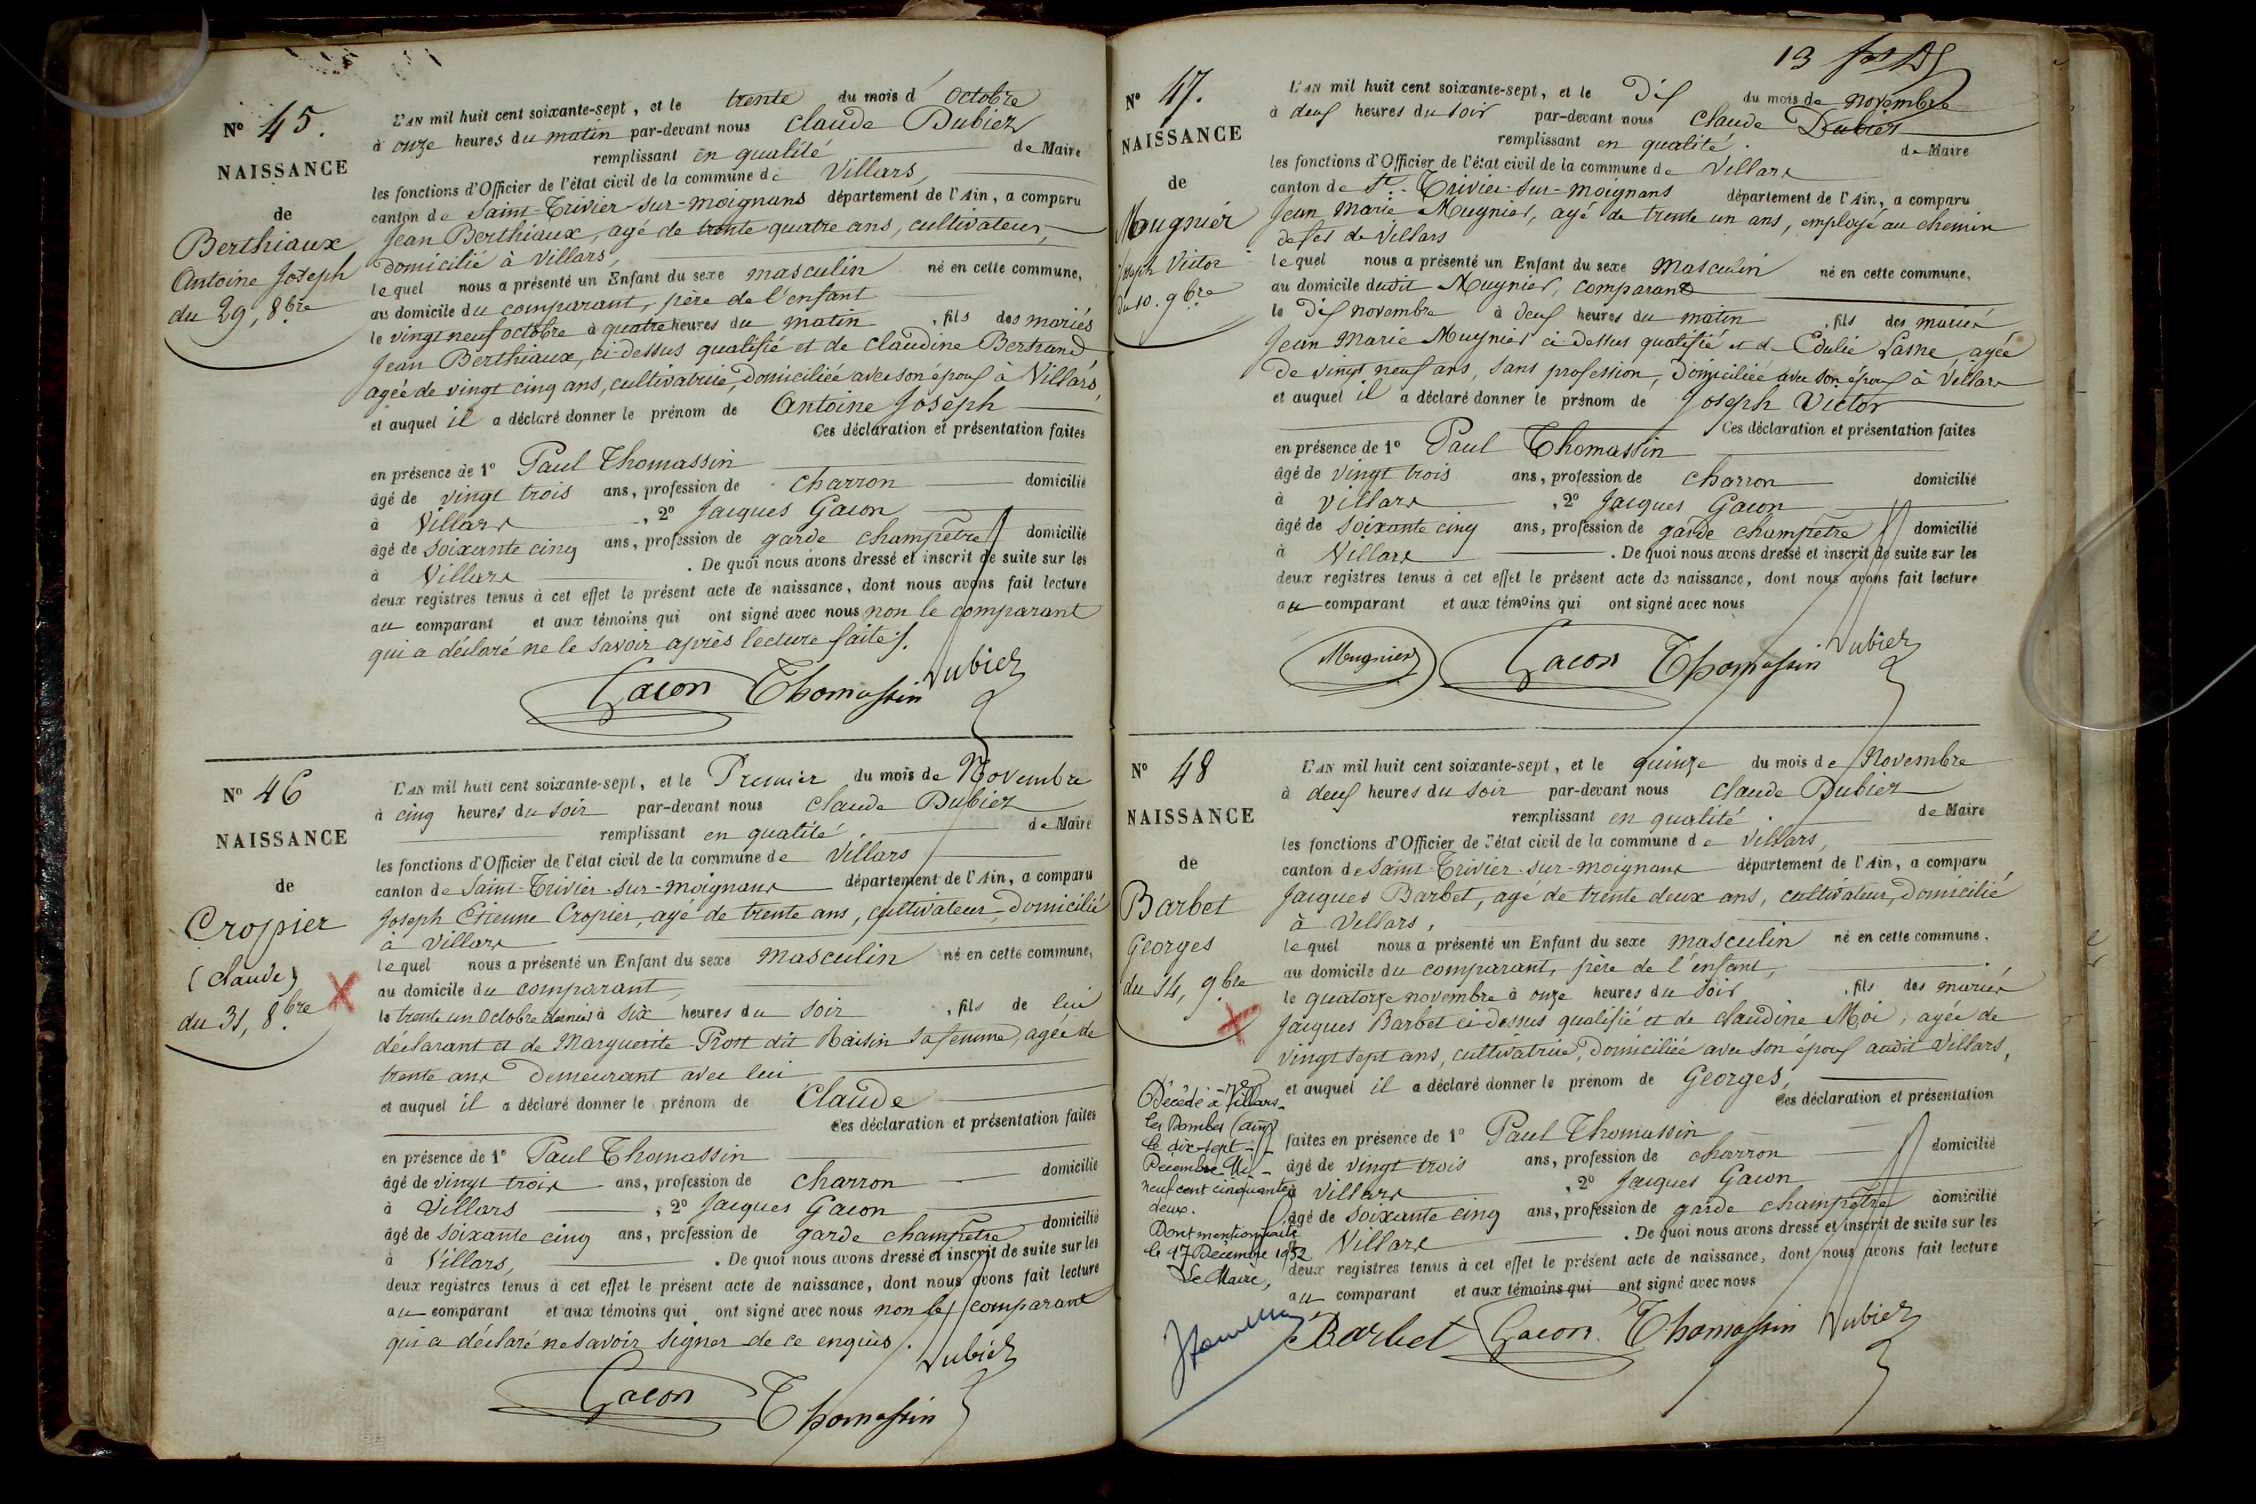 N° 45.
NAISSANCE
de
Berthiaux
Antoine Joseph
du 29, 8bre
L'AN mil huit cent soixante-sept, et le trente du mois d' octobre
à onze heures du matin par-devant nous Claude Dubiez
remplissant en qualité de Maire
les fonctions d'Officier de l'état civil de la commune de Villars,
canton de Saint-Trivier-sur-moignans département de l'Ain, a comparu
Jean Berthiaux, agé de trente quatre ans, cultivateur,
domicilié à Villars,
lequel nous a présenté un Enfant du sexe masculin né en cette commune,
au domicile du comparant, père de l'enfant
le vingt neuf octobre à quatre heures du matin, fils des mariés
Jean Berthiaux, ci-dessus qualifié et de Claudine Bertrand
agée de vingt cinq ans, cultivatrice, domiciliée avec son époux à Villars,
et auquel il a déclaré donner le prénom de Antoine Joseph
Ces déclaration et présentation faites
en présence de 1° Paul Thomassin
âgé de vingt trois ans, profession de charron domicilié
à Villars, 2° Jacques Gacon
âgé de soixante cinq ans, profession de garde champêtre domicilié
à Villars. De quoi nous avons dressé et inscrit de suite sur les
deux registres tenus à cet effet le présent acte de naissance, dont nous avons fait lecture
au comparant et aux témoins qui ont signé avec nous non le comparant
qui a déclaré ne le savoir après lecture faite.
Gacon Thomassin Dubiez
N° 46
NAISSANCE
de
Cropier
(Claude)
du 31, 8bre
X
L'AN mil huit cent soixante-sept, et le Premier du mois de Novembre
à cinq heures du soir par-devant nous Claude Dubiez
remplissant en qualité de Maire
les fonctions d'Officier de l'état civil de la commune de Villars
canton de Saint-Trivier-sur-moignans département de l'Ain, a comparu
Joseph Etienne Cropier, agé de trente ans, cultivateur, domicilié
à Villars
lequel nous a présenté un Enfant du sexe masculin né en cette commune,
au domicile du comparant,
le trente un Octobre dernier à six heures du soir, fils de lui
déclarant et de Marguerite Prost dit Raisin sa femme, agée de
trente ans demeurant avec lui
et auquel il a déclaré donner le prénom de Claude
Ces déclaration et présentation faites
en présence de 1° Paul Thomassin
âgé de vingt trois ans, profession de charron domicilié
à Villars, 2° Jacques Gacon
âgé de soixante cinq ans, profession de garde champêtre domicilié
à Villars,. De quoi nous avons dressé et inscrit de suite sur les
deux registres tenus à cet effet le présent acte de naissance, dont nous avons fait lecture
au comparant et aux témoins qui ont signé avec nous non le comparant
qui a déclaré ne savoir signer de ce enquis.
Gacon Thomassin Dubiez
13
N° 47.
NAISSANCE
de
Mugnier
Joseph Victor
du 10. 9bre
L'AN mil huit cent soixante-sept, et le Dix du mois de novembre
à deux heures du soir par-devant nous Claude Dubiez
remplissant en qualité de Maire
les fonctions d'Officier de l'état civil de la commune de Villars
canton de St-Trivier-sur-moignans département de l'Ain, a comparu
Jean Marie Mugnier, agé de trente un ans, employé au chemin
de fer de Villars
lequel nous a présenté un Enfant du sexe Masculin né en cette commune,
au domicile dudit Mugnier, comparant
le Dix novembre à deux heures du matin, fils des mariés
Jean Marie Mugnier ci-dessus qualifié et d' Edulie Lasne, agée
de vingt neuf ans, sans profession, domiciliée avec son époux à Villars
et auquel il a déclaré donner le prénom de Joseph Victor
Ces déclaration et présentation faites
en présence de 1° Paul Thomassin
âgé de vingt trois ans, profession de charron domicilié
à Villars, 2° Jacques Gacon
âgé de soixante cinq ans, profession de garde champêtre domicilié
à Villars. De quoi nous avons dressé et inscrit de suite sur les
deux registres tenus à cet effet le présent acte de naissance, dont nous avons fait lecture
au comparant et aux témoins qui ont signé avec nous
Mugnier Gacon Thomassin Dubiez
N° 48
NAISSANCE
de
Barbet
Georges
du 14, 9bre
X
Décédé à Villars-
les Dombes (Ain)
le dix-sept
Décembre Mil
neuf cent cinquante
deux.
Dont mention faite
le 17 Décembre 1952
Le Maire,
L'AN mil huit cent soixante-sept, et le quinze du mois de Novembre
à deux heures du soir par-devant nous Claude Dubiez
remplissant en qualité de Maire
les fonctions d'Officier de l'état civil de la commune de Villars,
canton de Saint-Trivier-sur-moignans département de l'Ain, a comparu
Jacques Barbet, agé de trente deux ans, cultivateur, domicilié
à Villars,
lequel nous a présenté un Enfant du sexe masculin né en cette commune,
au domicile du comparant, père de l'enfant,
le quatorze novembre à onze heures du soir, fils des mariés
Jacques Barbet ci-dessus qualifié et de Claudine Moi, agée de
vingt sept ans, cultivatrice, domiciliée avec son époux audit Villars,
et auquel il a déclaré donner le prénom de Georges,
Ces déclaration et présentation
faites en présence de 1° Paul Thomassin
âgé de vingt trois ans, profession de charron domicilié
à Villars, 2° Jacques Gacon
âgé de soixante cinq ans, profession de garde champêtre domicilié
à Villars. De quoi nous avons dressé et inscrit de suite sur les
deux registres tenus à cet effet le présent acte de naissance, dont nous avons fait lecture
au comparant et aux témoins qui ont signé avec nous
Barbet Gacon Thomassin Dubiez